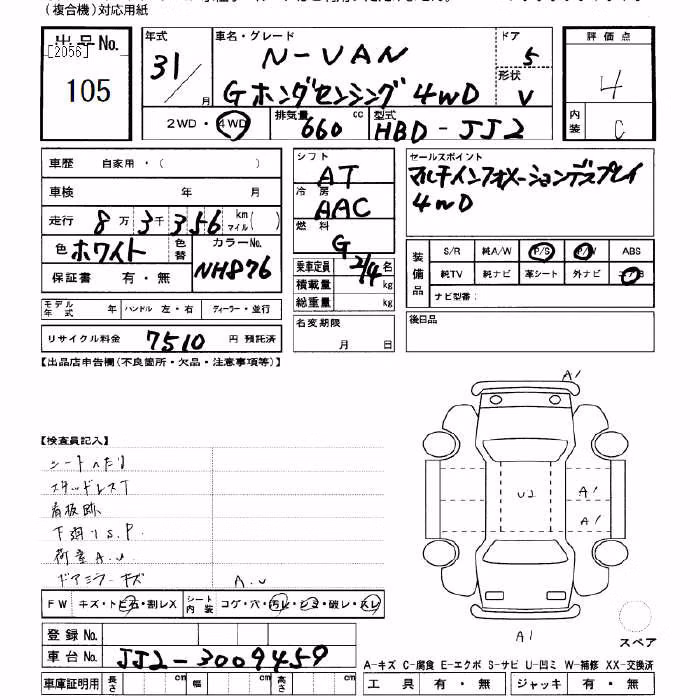 (複合機)対応用紙
出品No.
[2056]
105
年式
31/ 月
車名・グレード
N-VAN
Gホンダセンシング 4WD
ドア
5
形状
V
2WD・4WD
排気量 660 cc
型式 HBD-JJ2
評価点
4
内装 C
車歴 自家用・( )
車検 年 月
走行 8万3千356 km マイル( )
色 ホワイト 色替 カラーNo. NH876
保証書 有・無
モデル年式 年 ハンドル 左・右 ディーラー・並行
リサイクル料金 7510 円 預託済
シフト AT
冷房 AAC
燃料 G
乗車定員 2/4 名
積載量 kg
総重量 kg
名変期限
月 日
セールスポイント
マルチインフォメーションディスプレイ
4WD
装備品
S/R 純A/W P/S P/W ABS
純TV 純ナビ 革シート 外ナビ エアB
ナビ型番:
後日品
【出品店申告欄(不良箇所・欠品・注意事項等)】
【検査員記入】
シートヘたり
スタッドレスT
看板跡
下廻りS.P.
荷室A.U
ドアミラーキズ A.U
A1
U2
A1
A1
A1
スペア
FW キズ・トビ石・割レX シート内装 コゲ・穴・汚レ・シミ・破レ・スレ
登録No.
車台No. JJ2-3009459
車庫証明用 長さ cm 幅 cm 高さ cm
A-キズ C-腐食 E-エクボ S-サビ U-凹ミ W-補修 XX-交換済
工具 有・無 ジャッキ 有・無